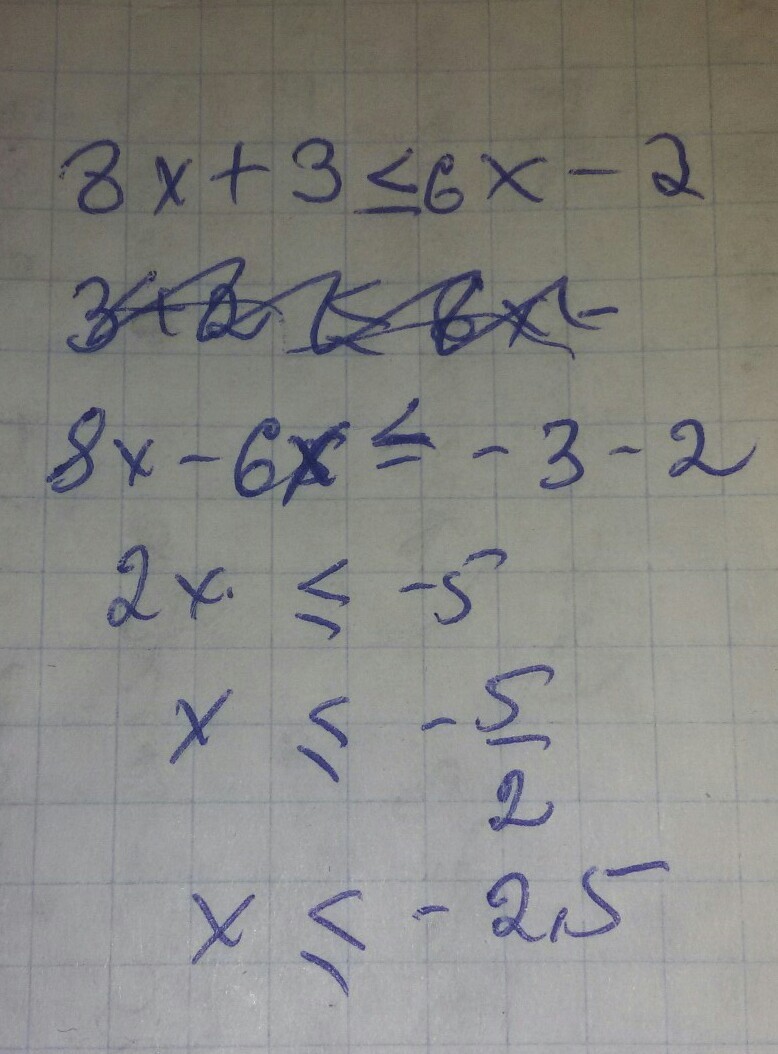 8x+3≤6x-2
8x-6x≤-3-2
2x ≤ -5
x ≤ -5/2
x ≤ -2,5